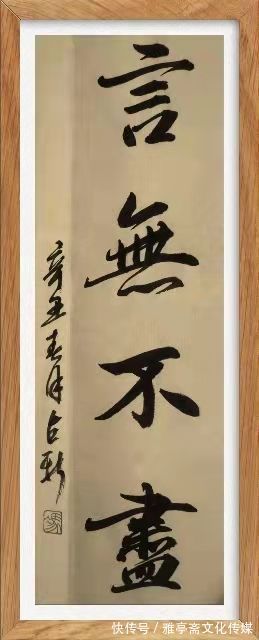 言無不盡
辛丑春月占新
馮
快传号/雅亭斋文化传媒